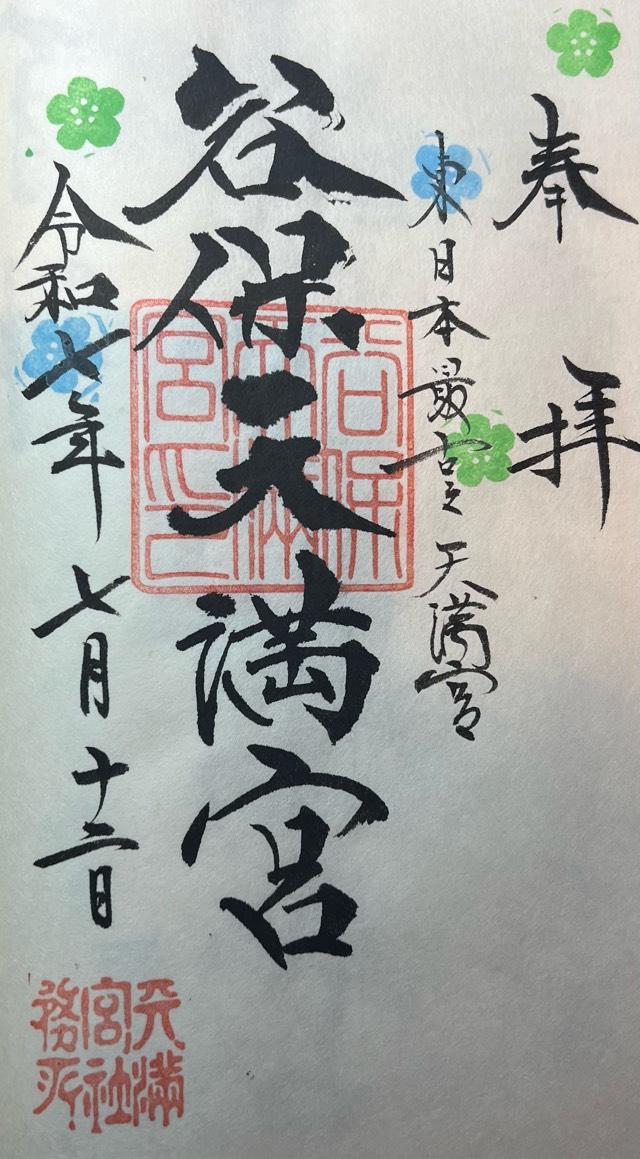 奉拝
東日本最古之天満宮
谷保天満宮
谷保天満宮印
令和七年七月十二日
天満宮社務所